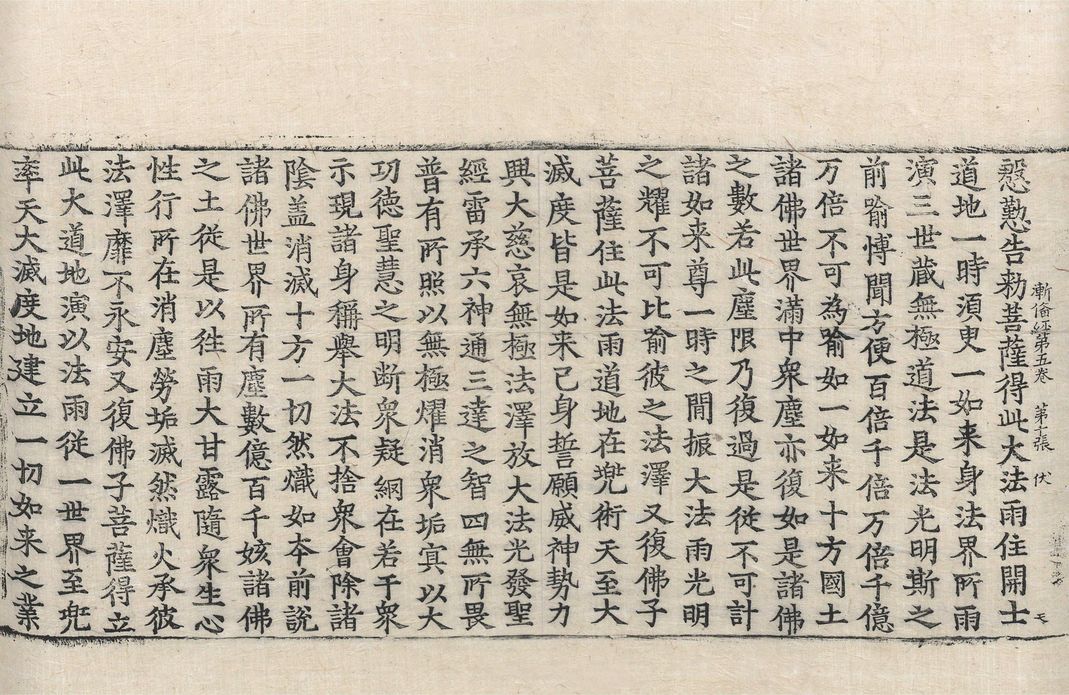 慇懃告勑菩薩得此大法雨住開士
漸備經第五卷 第十張 伏
道地一時須臾一如来身法界所雨
演三世蔵無極道法是法光明斯之
前喻愽聞方便百倍千倍万倍千億
万倍不可為喻如一如来十方國土
諸佛世界滿中衆塵亦復如是諸佛
之數若此塵限乃復過是從不可計
諸如来尊一時之間振大法雨光明
之耀不可比喻彼之法澤又復佛子
菩薩住此法雨道地在兜術天至大
滅度皆是如来己身誓願威神勢力
興大慈哀無極法澤放大法光發聖
經雷承六神通三達之智四無所畏
普有所照以無極耀消衆垢㝠以大
功徳聖慧之明断衆疑網在若干衆
示現諸身稱舉大法不捨衆會除諸
陰盖消滅十方一切然熾如夲前說
諸佛世界所有塵數億百千姟諸佛
之土從是以徃雨大甘露隨衆生心
性行所在消塵勞垢滅然熾火承彼
法澤靡不永安又復佛子菩薩得立
此大道地演以法雨從一世界至兜
率天大滅度地建立一切如来之業